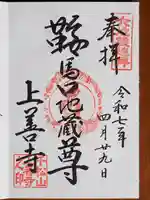 奉拝
令和七年
四月廿九日
鞍馬口地蔵尊
上善寺